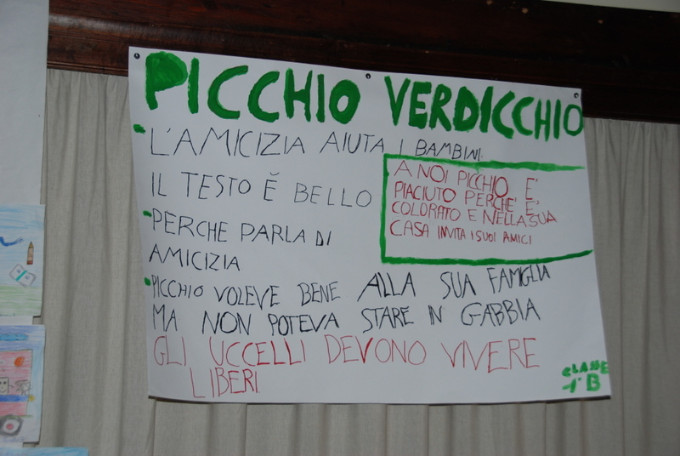 PICCHIO VERDICCHIO
L'AMICIZIA AIUTA I BAMBINI.
IL TESTO È BELLO
PERCHE PARLA DI
AMICIZIA
A NOI PICHIO E'
PIACIUTO PERCHE' E'
COLORATO E NELLA SUA
CASA INVITA I SUOI AMICI
PICCHIO VOLEVE BENE ALLA SUA FAMIGLIA
MA NON POTEVA STARE IN GABBIA
GLI UCCELLI DEVONO VIVERE
LIBERI
CLASSE
1°B